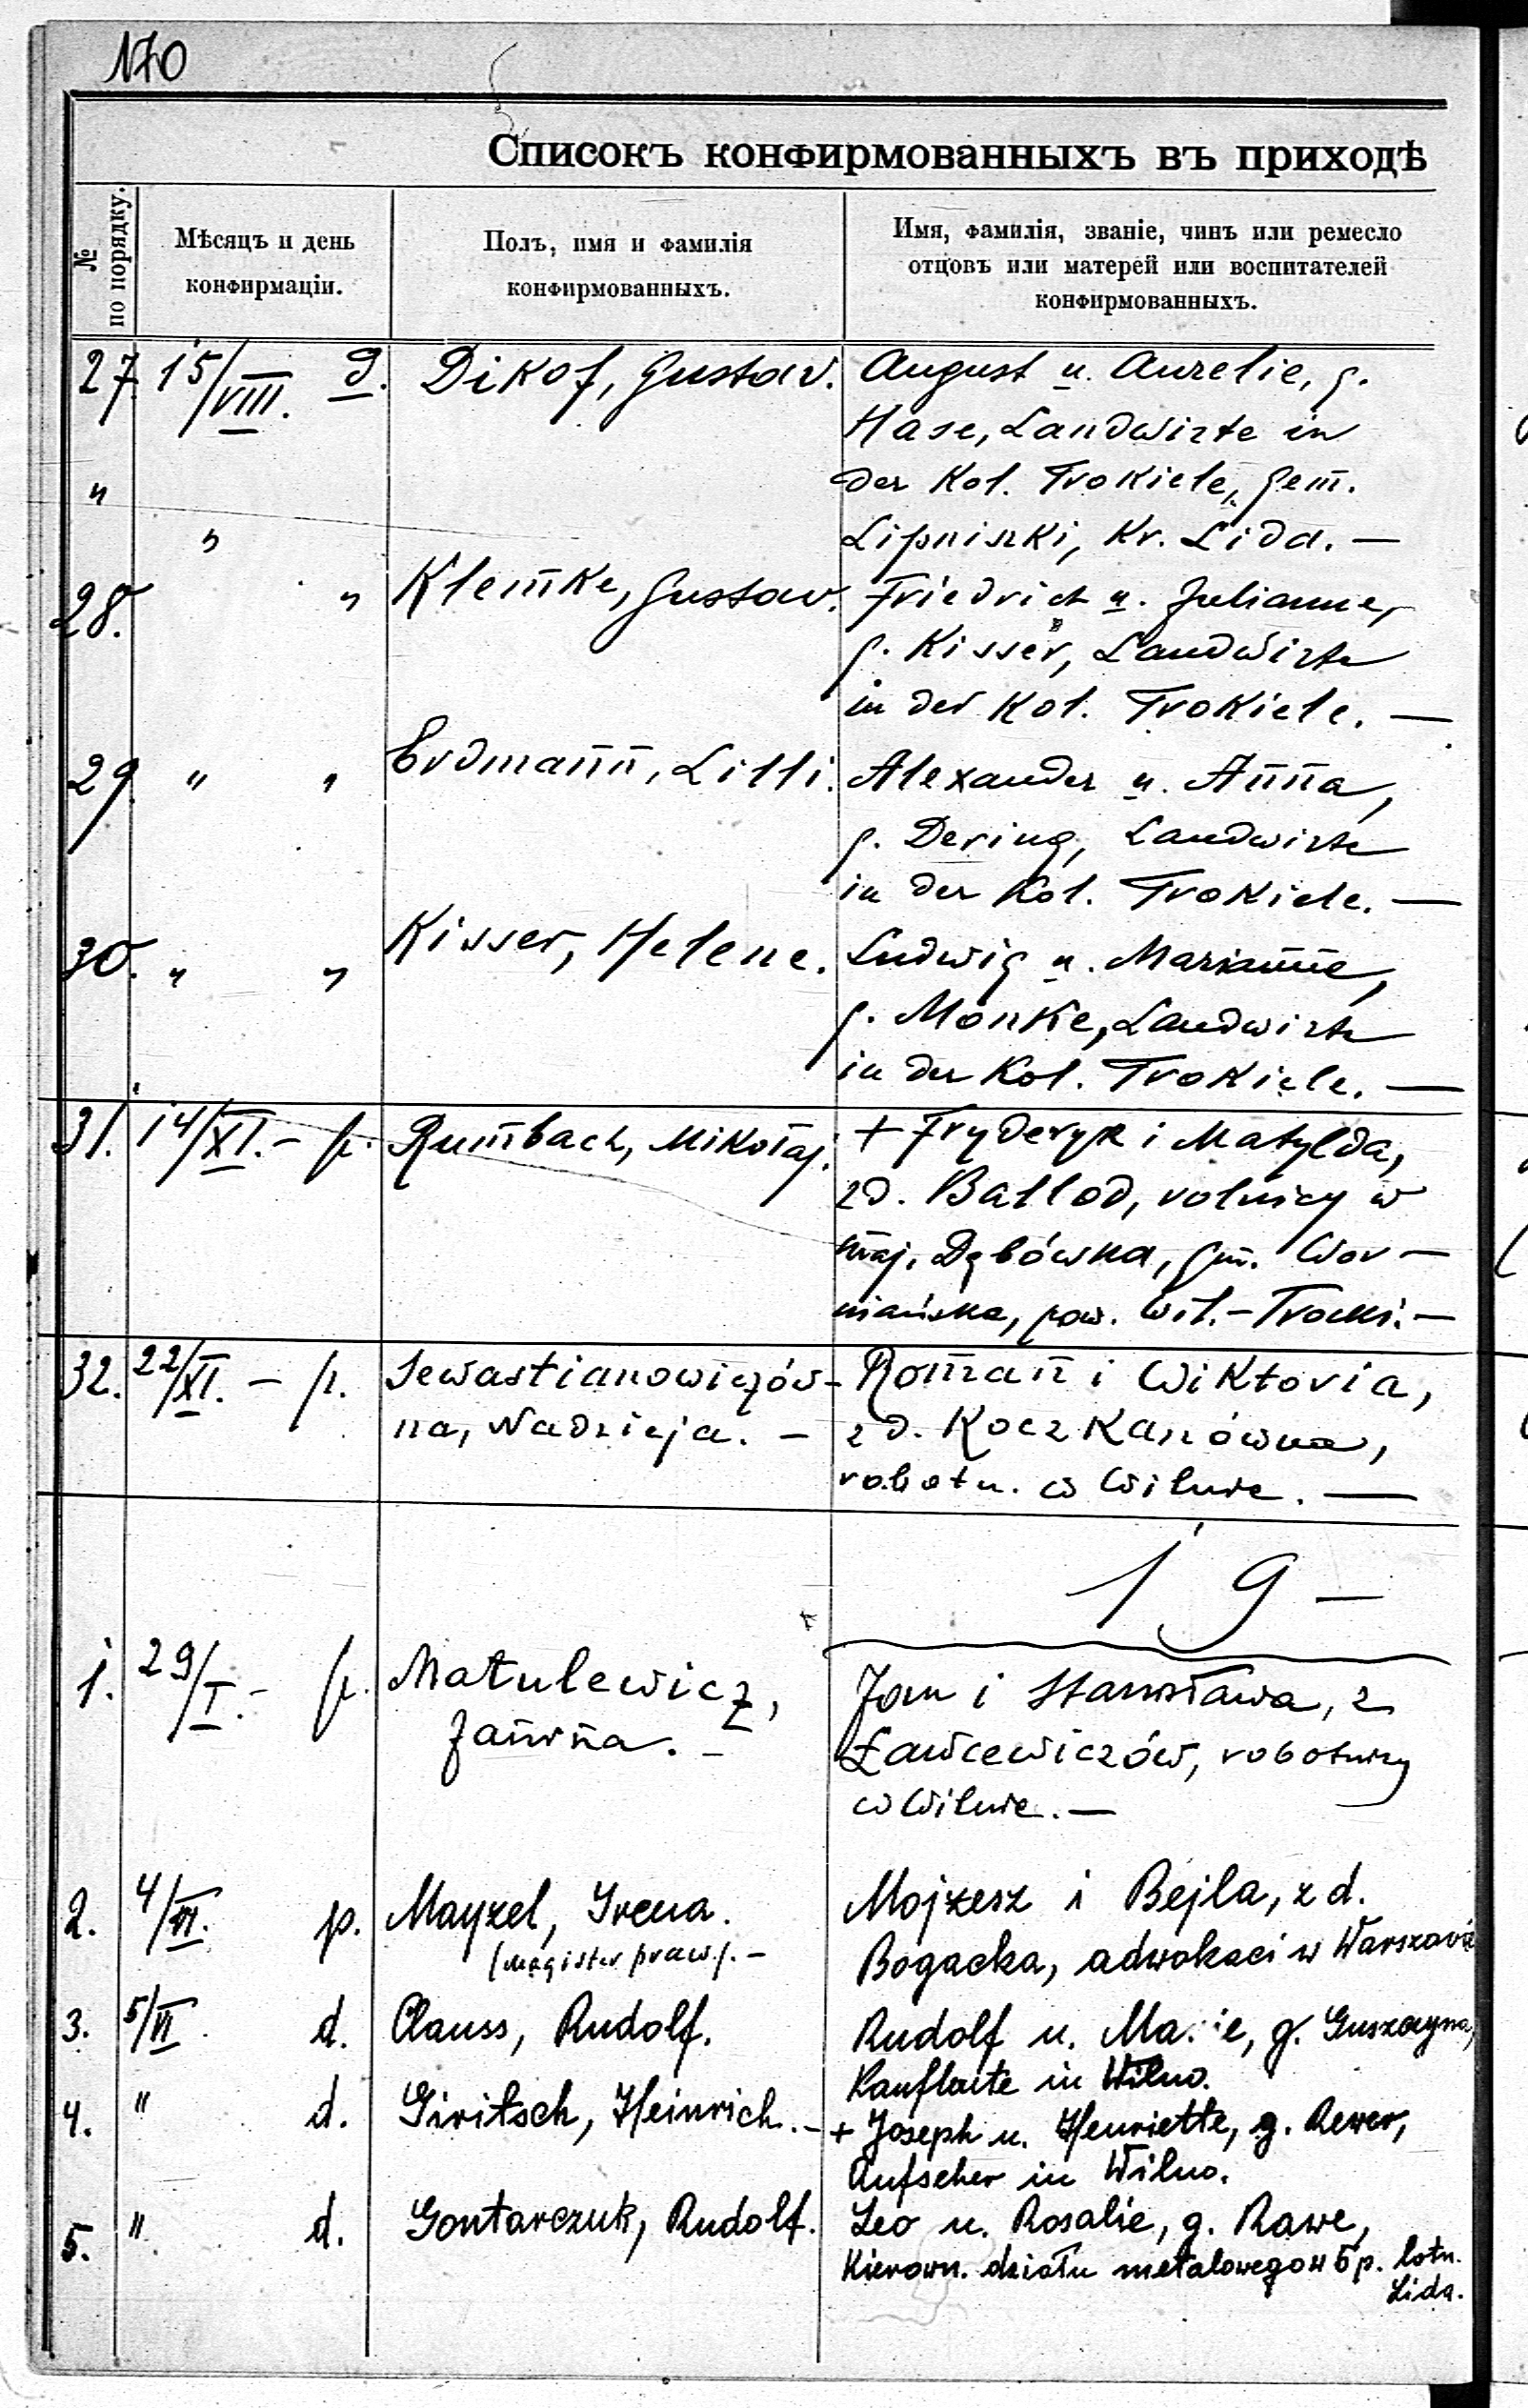 170
Списокъ конфирмованныхъ въ приходѣ
№ по порядку.
Мѣсяцъ и день
конфирмаціи.
Полъ, имя и фамилія
конфирмованныхъ.
Имя, фамилія, званіе, чинъ или ремесло
отцовъ или матерей или воспитателей
конфирмованныхъ.
27. 15/VIII. d. Dikof, Gustav. August u. Aurelie, g.
Hase, Landwirte in
" der Kol. Trokiele, Gem.
" Lipniszki, Kr. Lida. —
28. " Klemke, Gustav. Friedrich u. Julianne,
g. Kisser, Landwirte
in der Kol. Trokiele. —
29. " " Erdmann, Lilli. Alexander u. Anna,
g. Dering, Landwirte
in der Kol. Trokiele. —
30. " " Kisser, Helene. Ludwig u. Marianne,
g. Monke, Landwirte
in der Kol. Trokiele. —
31. 14/XI. - p. Rumbach, Mikołaj. + Fryderyk i Matylda,
zd. Ballod, rolnicy w
maj. Dębówka, gm. Wor-
niańska, pow. Wil.-Trocki. —
32. 22/XI. - p. Sewastianowiczów- Roman i Wiktoria,
na, Nadzieja. - zd. Koczkanówna,
robotn. w Wilnie. —
19 —
1. 29/I. - p. Matulewicz, Jan i Stanisława, z
Janina. - Ławcewiczów, robotnicy
w Wilnie. —
2. 4/VI. p. Mayzel, Irena. Mojżesz i Bejla, z d.
(magister praw). - Bogacka, adwokaci w Warszawie
3. 5/VI. d. Clauss, Rudolf. Rudolf u. Marie, g.
Kaufleute in Wilno.
4. " d. Giritsch, Heinrich. - + Joseph u. Henriette, g. Rewer,
Aufseher in Wilno.
5. " d. Gontarczuk, Rudolf. Leo u. Rosalie, g. Rawe,
Kierown. działu metalowego w 5 p. lotn.
Lida.